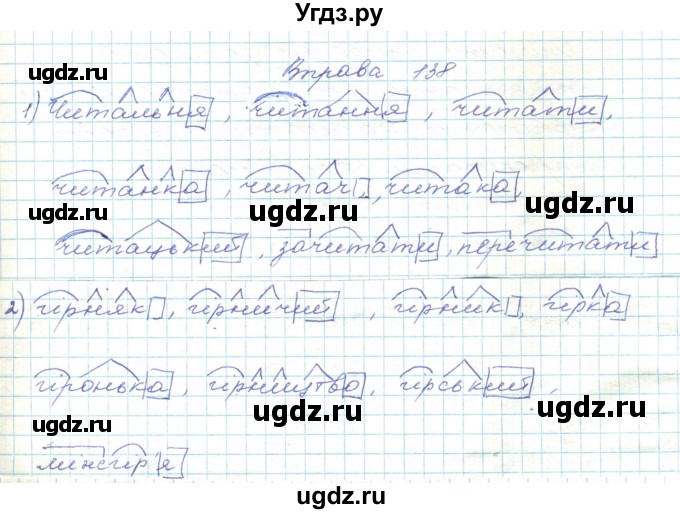 Угдз.ру
Вправа 138
ugdz.ru ugdz.ru
1) Читальня, читання, читати,
читанка, читач, читака,
ugdz.ru ugdz.ru
читацький, зачитати, перечитати
ugdz.ru ugdz.ru
2) гірняк, гірничий, гірник, гірка
ugdz.ru ugdz.ru
гіронька, гірництво, гірський,
ugdz.ru ugdz.ru
мінсгір'я
ugdz.ru